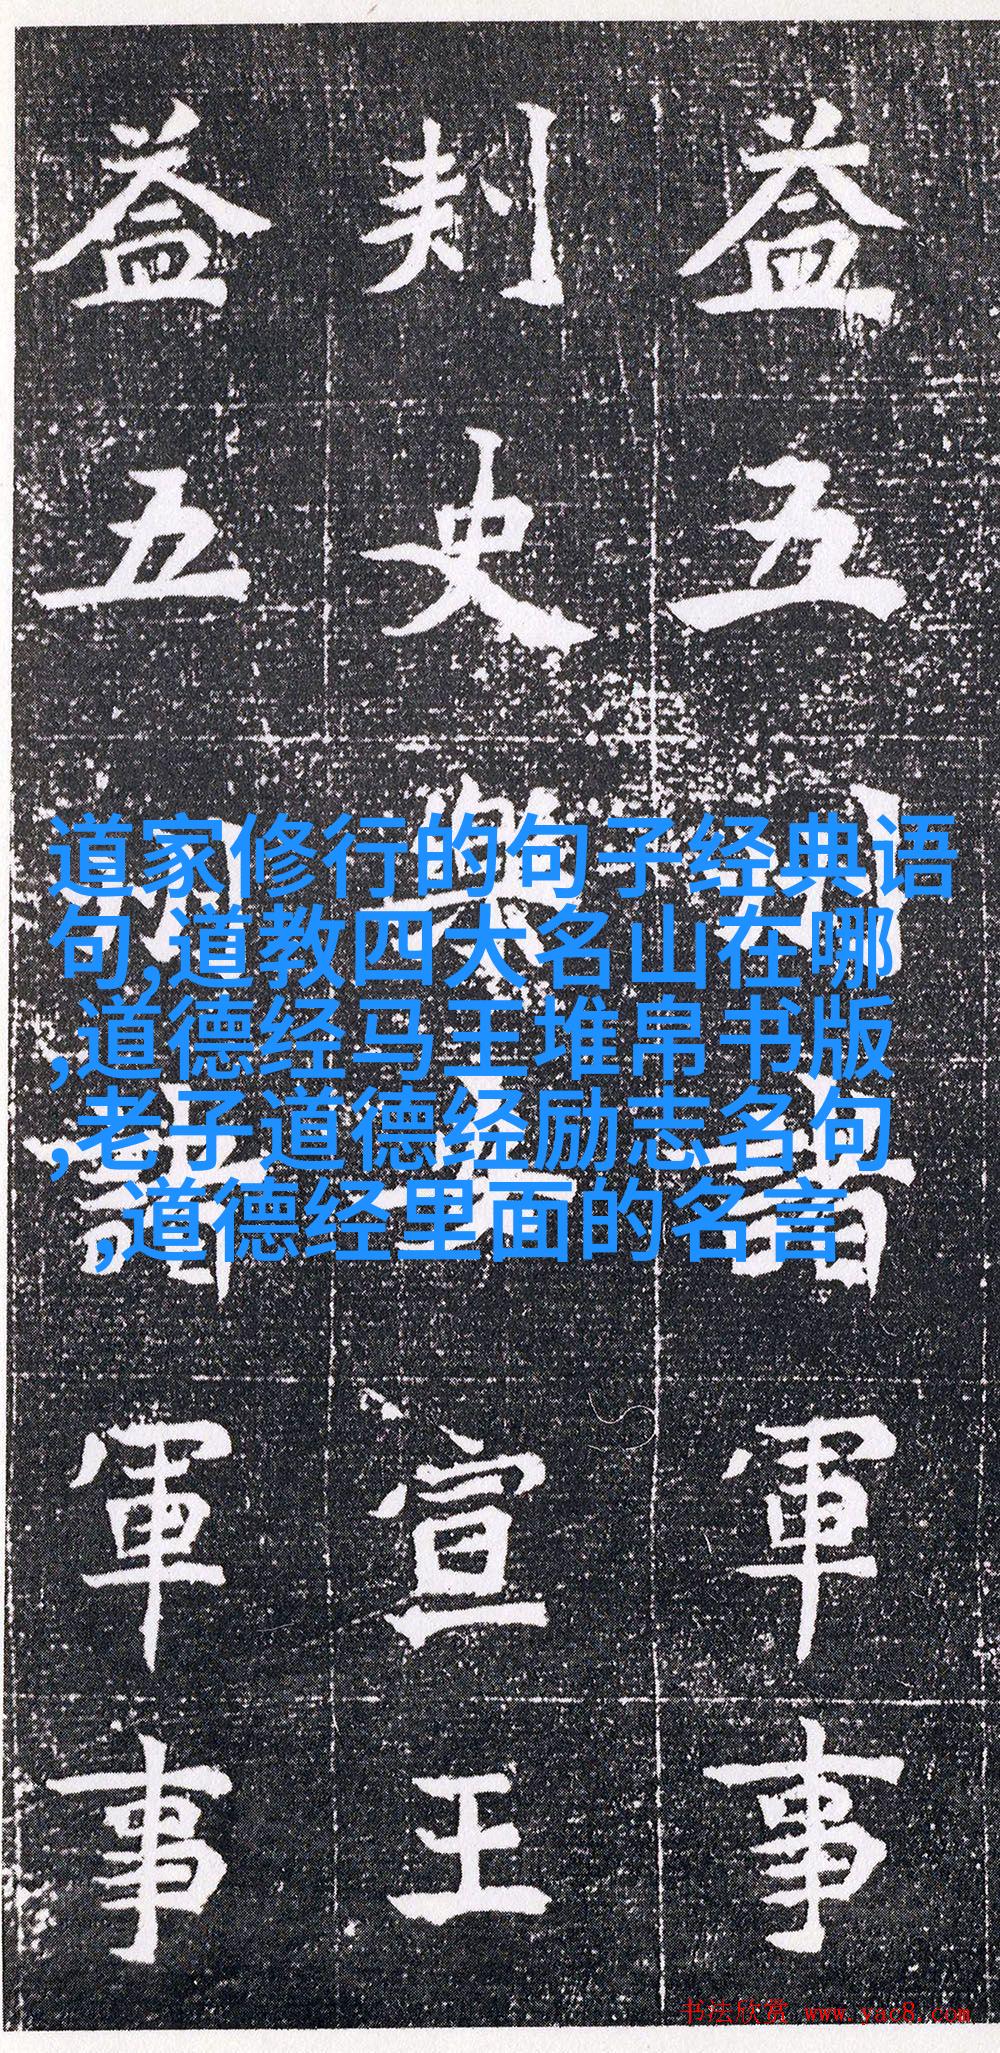 益五州諸軍事
刾史興平宣王
益五州諸軍事
道家修行的句子经典语
句,道教四大名山在哪
,道德经马王堆帛书版
,老子道德经励志名句
,道德经里面的名言
书法欣赏 www.yac8.com